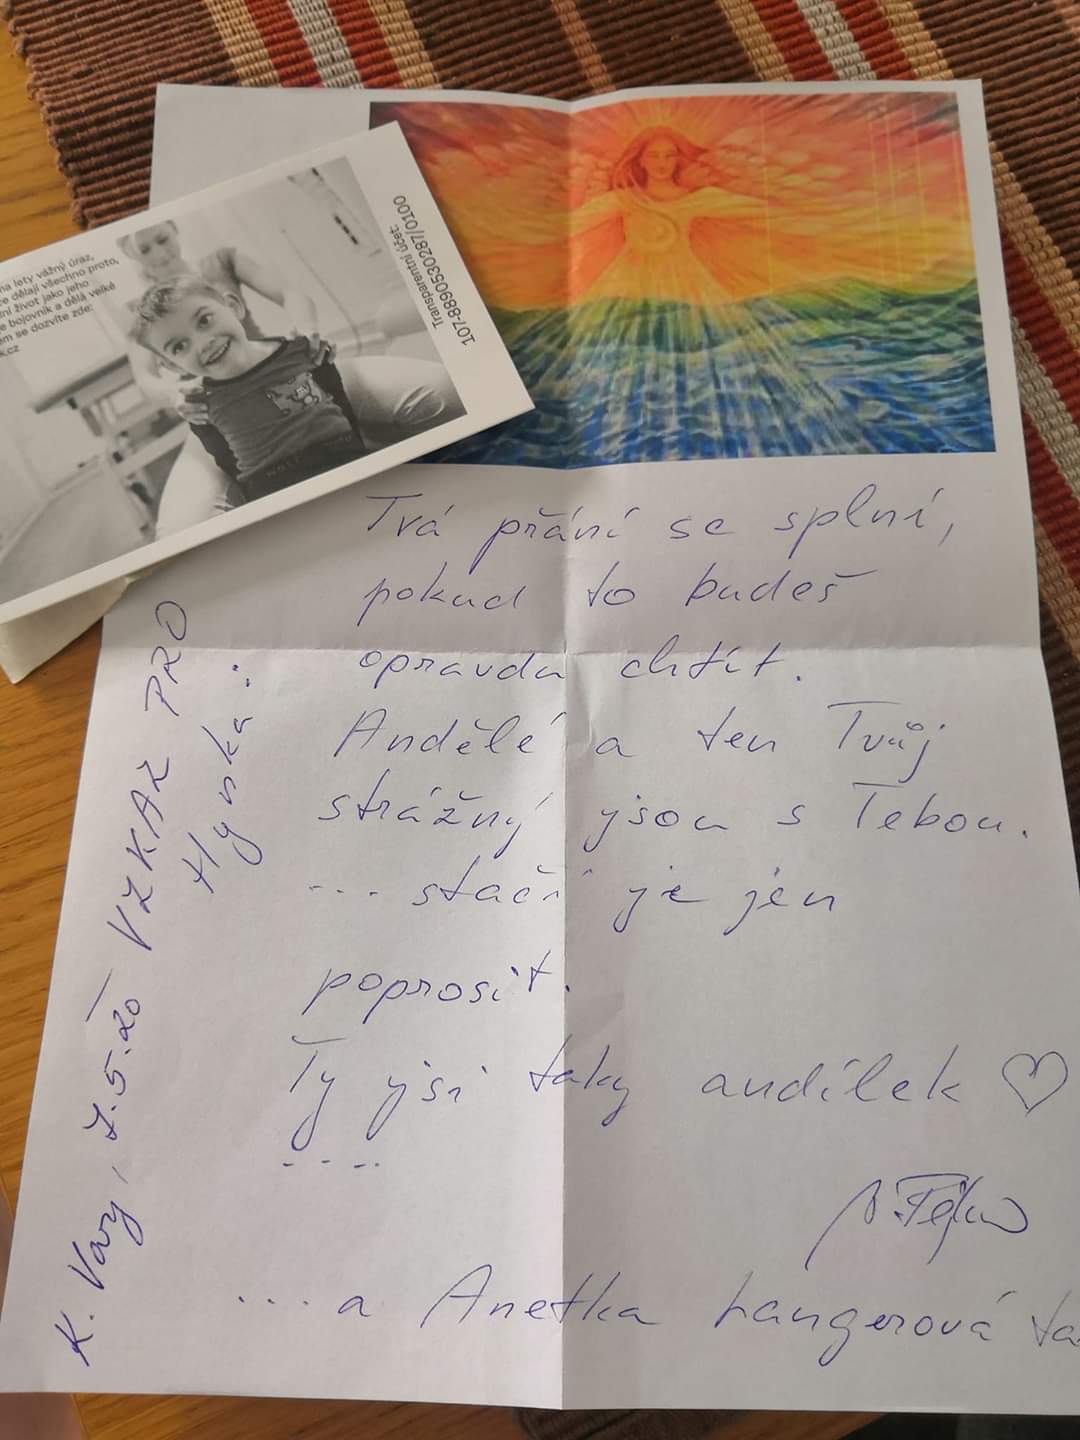 na lety vážný úraz,
ze dělají všechno proto,
ní život jako jeho
e bojovník a dělá velké
em se dozvíte zde:
k.cz
Transparentní účet:
107-8890530287/0100
Tvá přání se splní,
pokud to budeš
opravdu chtít.
Andělé a ten Tvůj
strážný jsou s Tebou.
... stačí je jen
poprosit.
Ty jsi taky andílek ♡
....
... a Anetka Langerová ta
K. Vary, 7.5.20 VZKAZ PRO
Hynka: